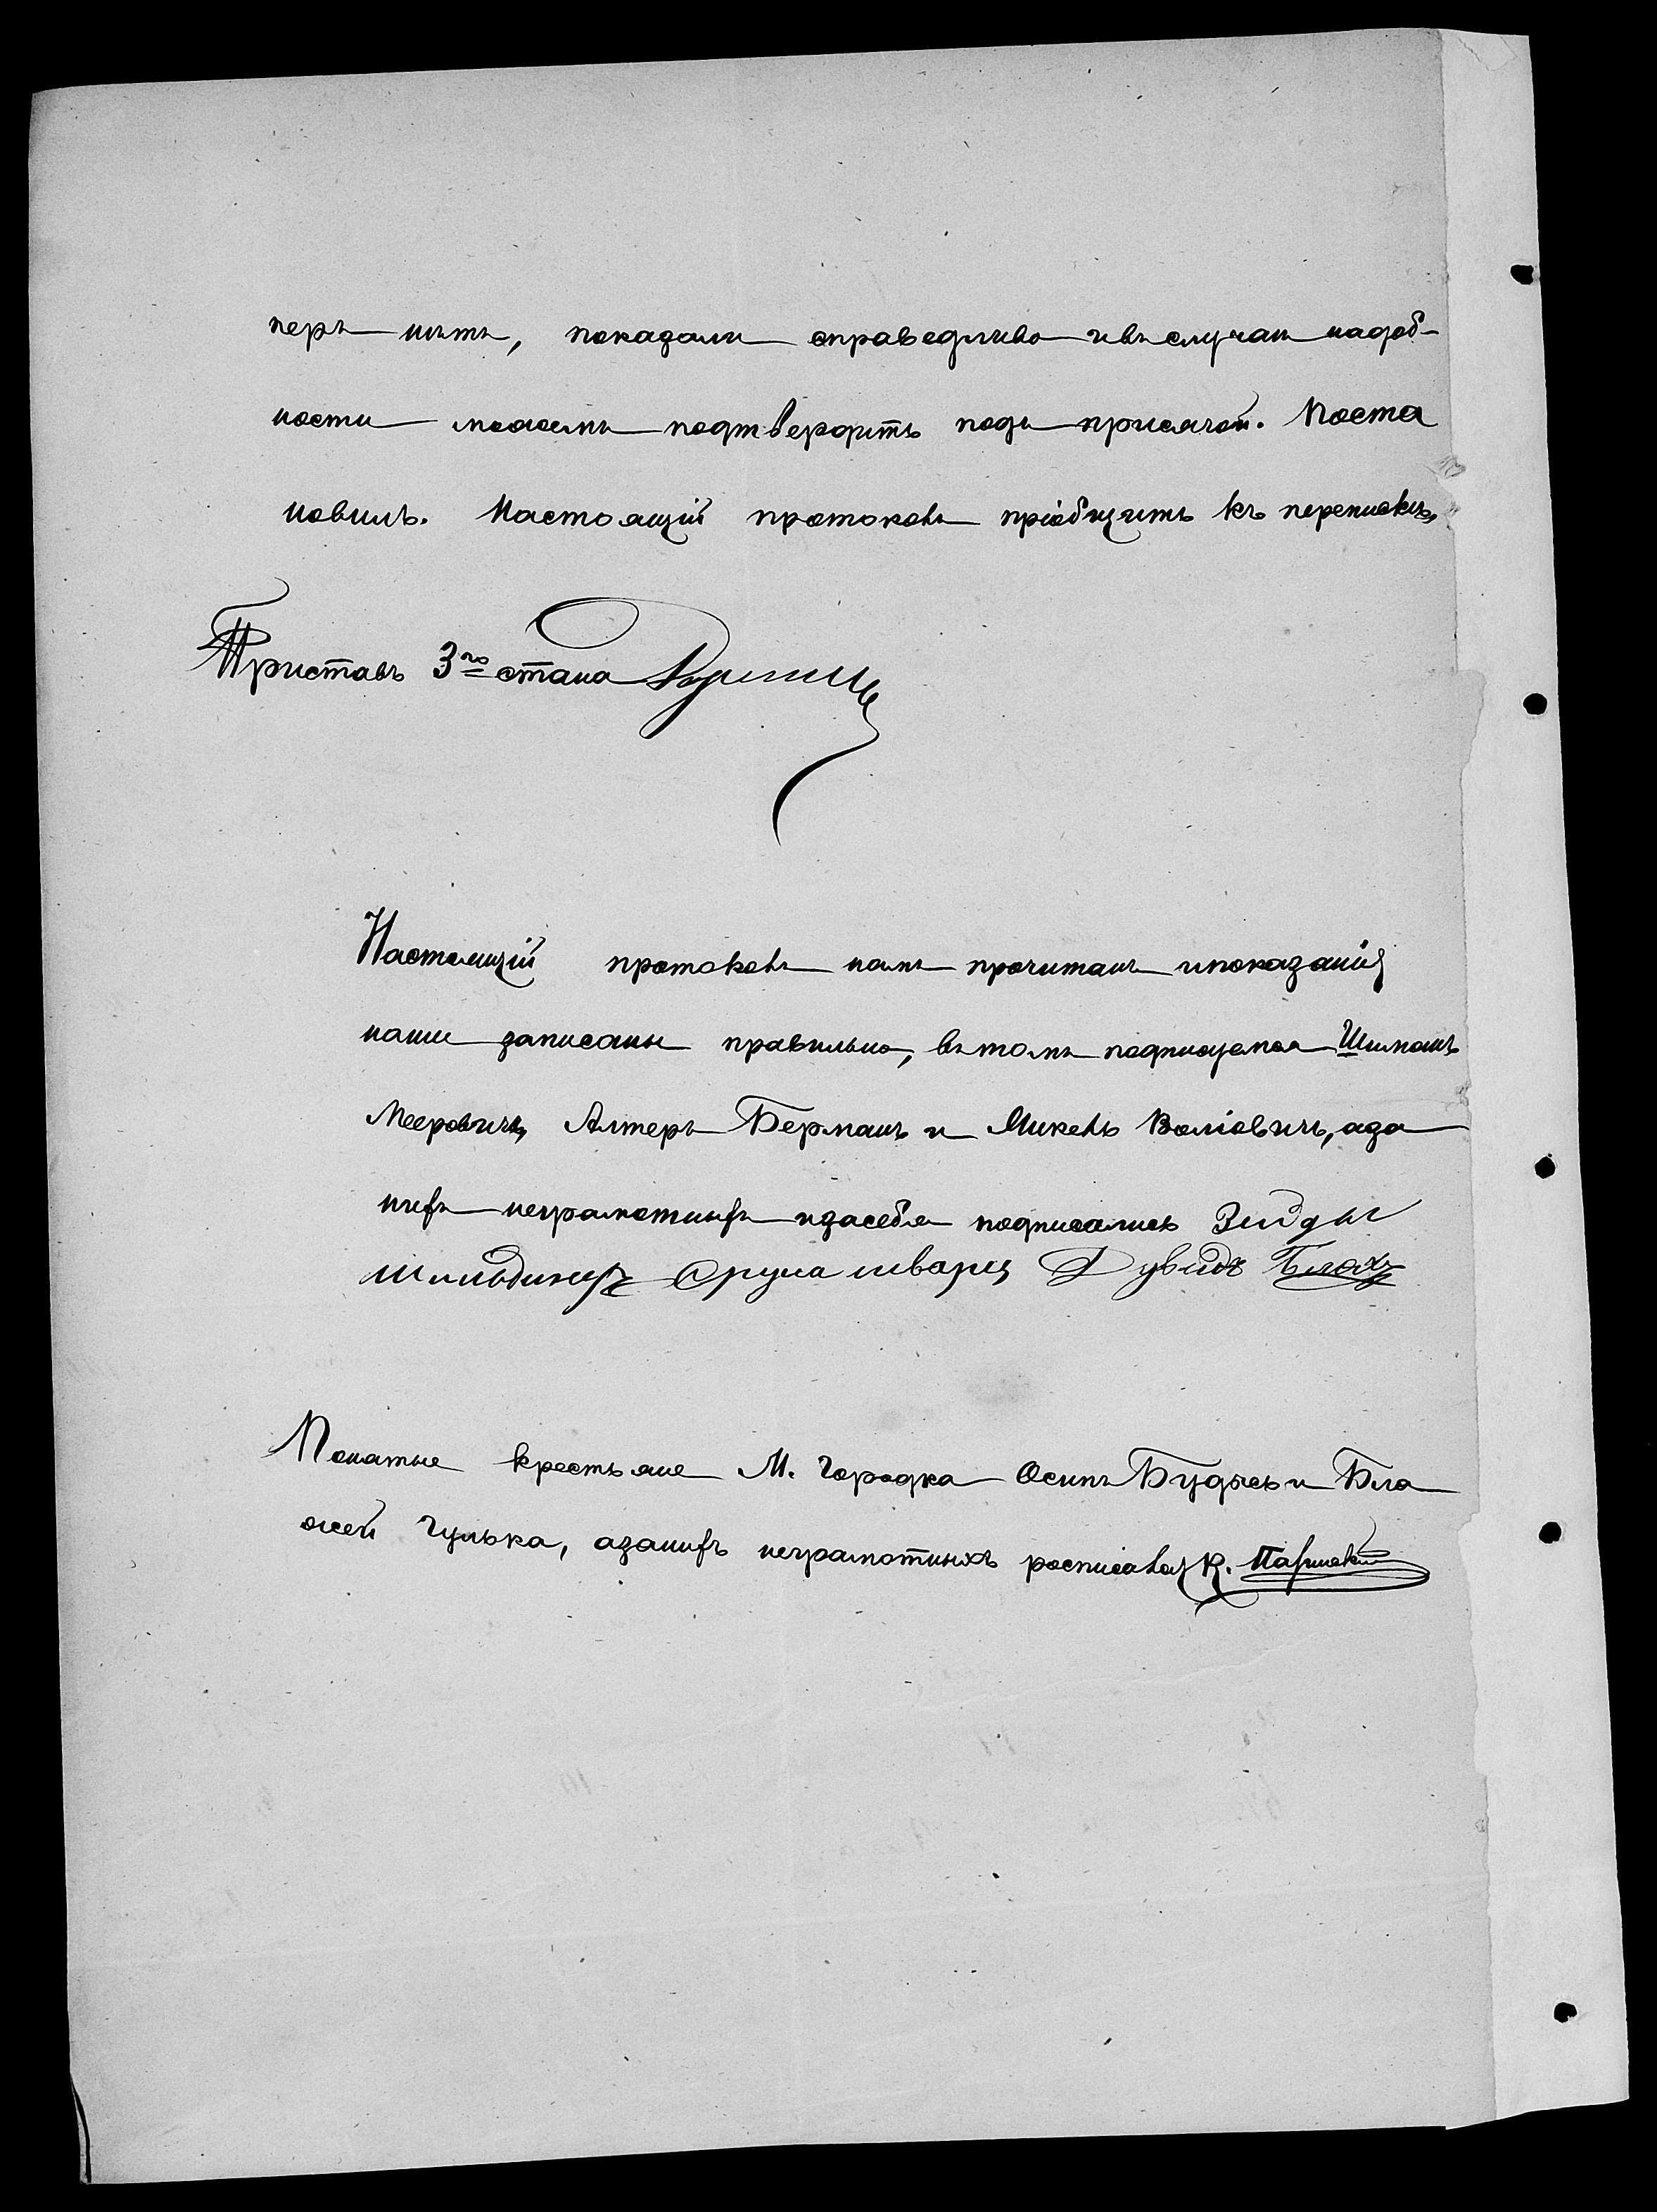 перъ нѣтъ, показали справедливо и въ случаѣ надоб-
ности можемъ подтвердить подъ присягой. Поста
новилъ. Настоящій протоколъ пріобщить къ перепискѣ,
Приставъ 3го стана
Настоящій протоколъ намъ прочитанъ и показанія
наши записаны правильно, въ томъ подписуемся Шиманъ
Мееровичъ, Алтеръ Берманъ и Микель Воліовичъ, а за
нихъ неграмотныхъ и за себя подписались Зейды
Шмльдинеръ Сруля шварцъ Дувидъ Блохъ
Понятые крестьяне М. Городка Осипъ Будясъ и Бла
жей Гулька, а за нихъ неграмотныхъ росписался К.